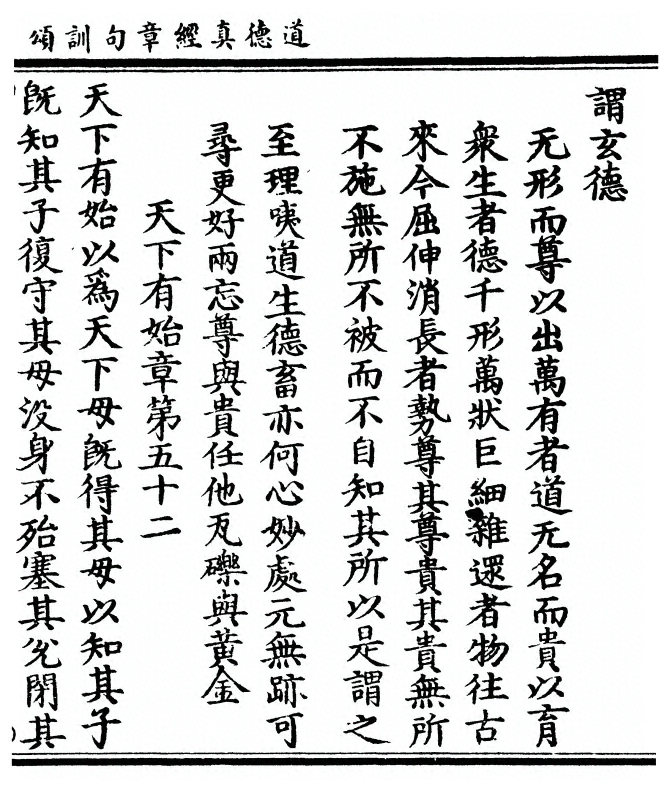 道德真經章句訓頌
謂玄德
无形而尊以出萬有者道无名而貴以育
衆生者德千形萬狀巨細雜遝者物往古
來今屈伸消長者勢尊其尊貴其貴無所
不施無所不被而不自知其所以是謂之
至理咦道生德畜亦何心妙處元無跡可
尋更好兩忘尊與貴任他瓦礫與黃金
天下有始章第五十二
天下有始以爲天下母旣得其母以知其子
旣知其子復守其母没身不殆塞其兊閉其